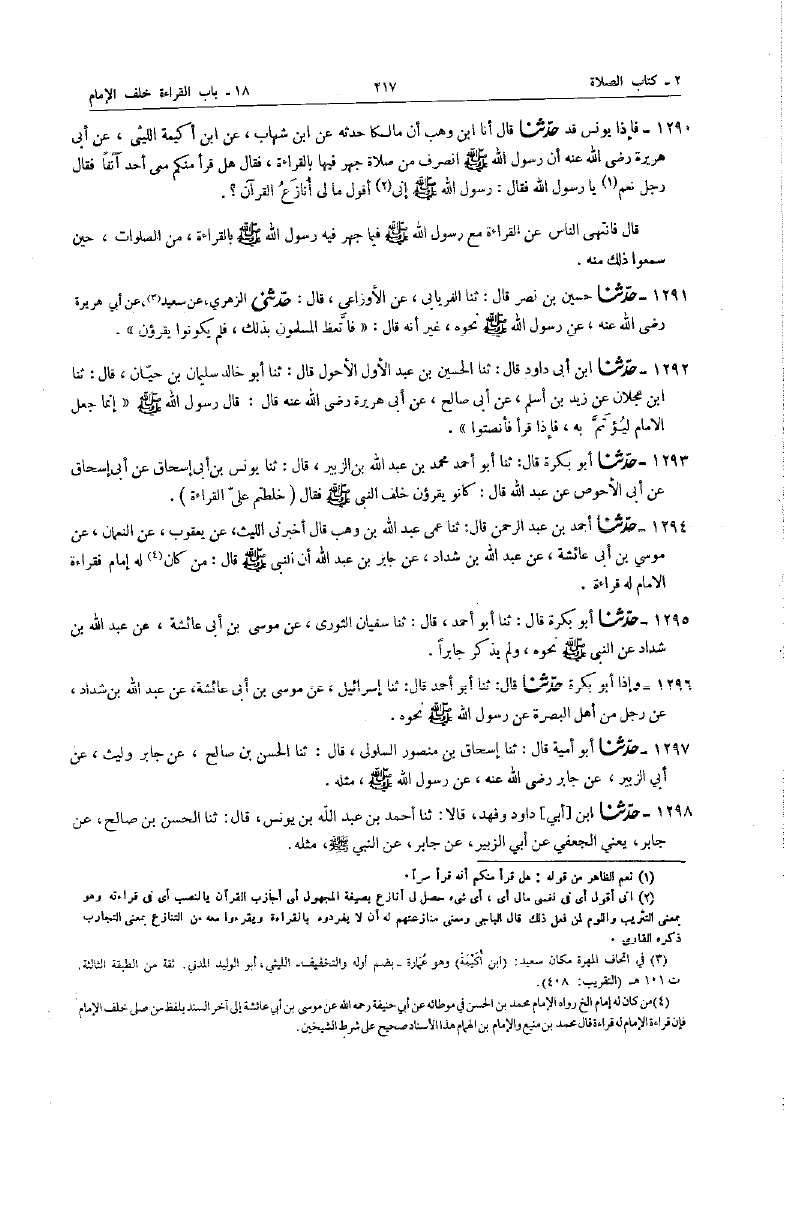 ٢ ـ كتاب الصلاة
٢١٧
١٨ ـ باب القراءة خلف الإمام
١٢٩٠ ـ فإذا يونس قد حدّثنا قال أنا ابن وهب أن مالكا حدثه عن ابن شهاب ، عن ابن أكيمة الليثي ، عن أبي
هريرة رضى الله عنه أن رسول الله ﷺ انصرف من صلاة جهر فيها بالقراءة ، فقال هل قرأ منكم معى أحد آنفاً فقال
رجل نعم(١) يا رسول الله فقال : رسول الله ﷺ إنى(٢) أقول ما لى أُنازَعُ القرآن ؟ .
قال فانتهى الناس عن القراءة مع رسول الله ﷺ فيما جهر فيه رسول الله ﷺ بالقراءة ، من الصلوات ، حين
سمعوا ذلك منه .
١٢٩١ ـ حدّثنا حسين بن نصر قال : ثنا الفريابي ، عن الأوزاعى ، قال : حدّثنى الزهري، عن سعيد(٣)، عن أبي هريرة
رضى الله عنه ، عن رسول الله ﷺ نحوه ، غير أنه قال : « فاتَّعظ المسلمون بذلك ، فلم يكونوا يقرؤن » .
١٢٩٢ ـ حدّثنا ابن أبى داود قال : ثنا الحسين بن عبد الأول الأحول قال : ثنا أبو خالد سليمان بن حيّان ، قال : ثنا
ابن عجلان عن زيد بن أسلم ، عن أبى صالح ، عن أبى هريرة رضى الله عنه قال : قال رسول الله ﷺ « إنما جعل
الامام ليُؤتَمَّ به ، فإذا قرأ فأنصتوا » .
١٢٩٣ ـ حدّثنا أبو بكرة قال: ثنا أبو أحمد محمد بن عبد الله بن الزبير ، قال : ثنا يونس بن أبى إسحاق عن أبى إسحاق
عن أبى الأحوص عن عبد الله قال : كانو يقرؤن خلف النبى ﷺ فقال ( خلطتم علىّ القراءة ) .
١٢٩٤ ـ حدّثنا أحمد بن عبد الرحمن قال: ثنا عمى عبد الله بن وهب قال أخبرنى الليث، عن يعقوب ، عن النعمان ، عن
موسى بن أبى عائشة ، عن عبد الله بن شداد ، عن جابر بن عبد الله أن النبى ﷺ قال : من كان(٤) له إمام فقراءة
الامام له قراءة .
١٢٩٥ ـ حدّثنا أبو بكرة قال : ثنا أبو أحمد ، قال : ثنا سفيان الثورى ، عن موسى بن أبى عائشة ، عن عبد الله بن
شداد عن النبى ﷺ نحوه ، ولم يذكر جابراً .
١٢٩٦ ـ وإذا أبو بكرة حدّثنا قال: ثنا أبو أحمد قال: ثنا إسرائيل ، عن موسى بن أبى عائشة، عن عبد الله بن شداد ،
عن رجل من أهل البصرة عن رسول الله ﷺ نحوه .
١٢٩٧ ـ حدّثنا أبو أمية قال : ثنا إسحاق بن منصور السلولى ، قال : ثنا الحسن بن صالح ، عن جابر وليث ، عن
أبي الزبير ، عن جابر رضى الله عنه ، عن رسول الله ﷺ ، مثله .
١٢٩٨ ـ حدّثنا ابن [أبي] داود وفهد، قالا: ثنا أحمد بن عبد اللّه بن يونس، قال: ثنا الحسن بن صالح، عن
جابر، يعني الجعفي عن أبي الزبير، عن جابر، عن النبي ﷺ، مثله.
(١) نعم الظاهر من قوله : هل قرأ منكم أنه قرأ سراً .
(٢) انى أقول أى فى نفسى مالى أى ، أى شىء حصل لى أنازع بصيغة المجهول أى أجاذب القرآن بالنصب أى فى قراءته وهو
بمعنى التثريب واللوم لمن فعل ذلك قال الباجى ومعنى منازعتهم له أن لا يفردوه بالقراءة ويقرءوا معه من التنازع بمعنى التجارب
ذكره القارى .
(٣) في اتحاف المهرة مكان سعيد: (ابن أُكَيْمَة) وهو عُمارة ـ بضم أوله والتخفيف ـ الليثي، أبو الوليد المدني. ثقة من الطبقة الثالثة.
ت ١٠١ هـ (التقريب: ٤٠٨).
(٤) من كان له إمام الخ رواه الإمام محمد بن الحسن في موطائه عن أبي حنيفة رحمه الله عن موسى بن أبي عائشة إلى آخر السند بلفظ من صلى خلف الإمام
فإن قراءة الإمام له قراءة قال محمد بن منيع والإمام بن الهمام هذا الأسناد صحيح على شرط الشيخين.